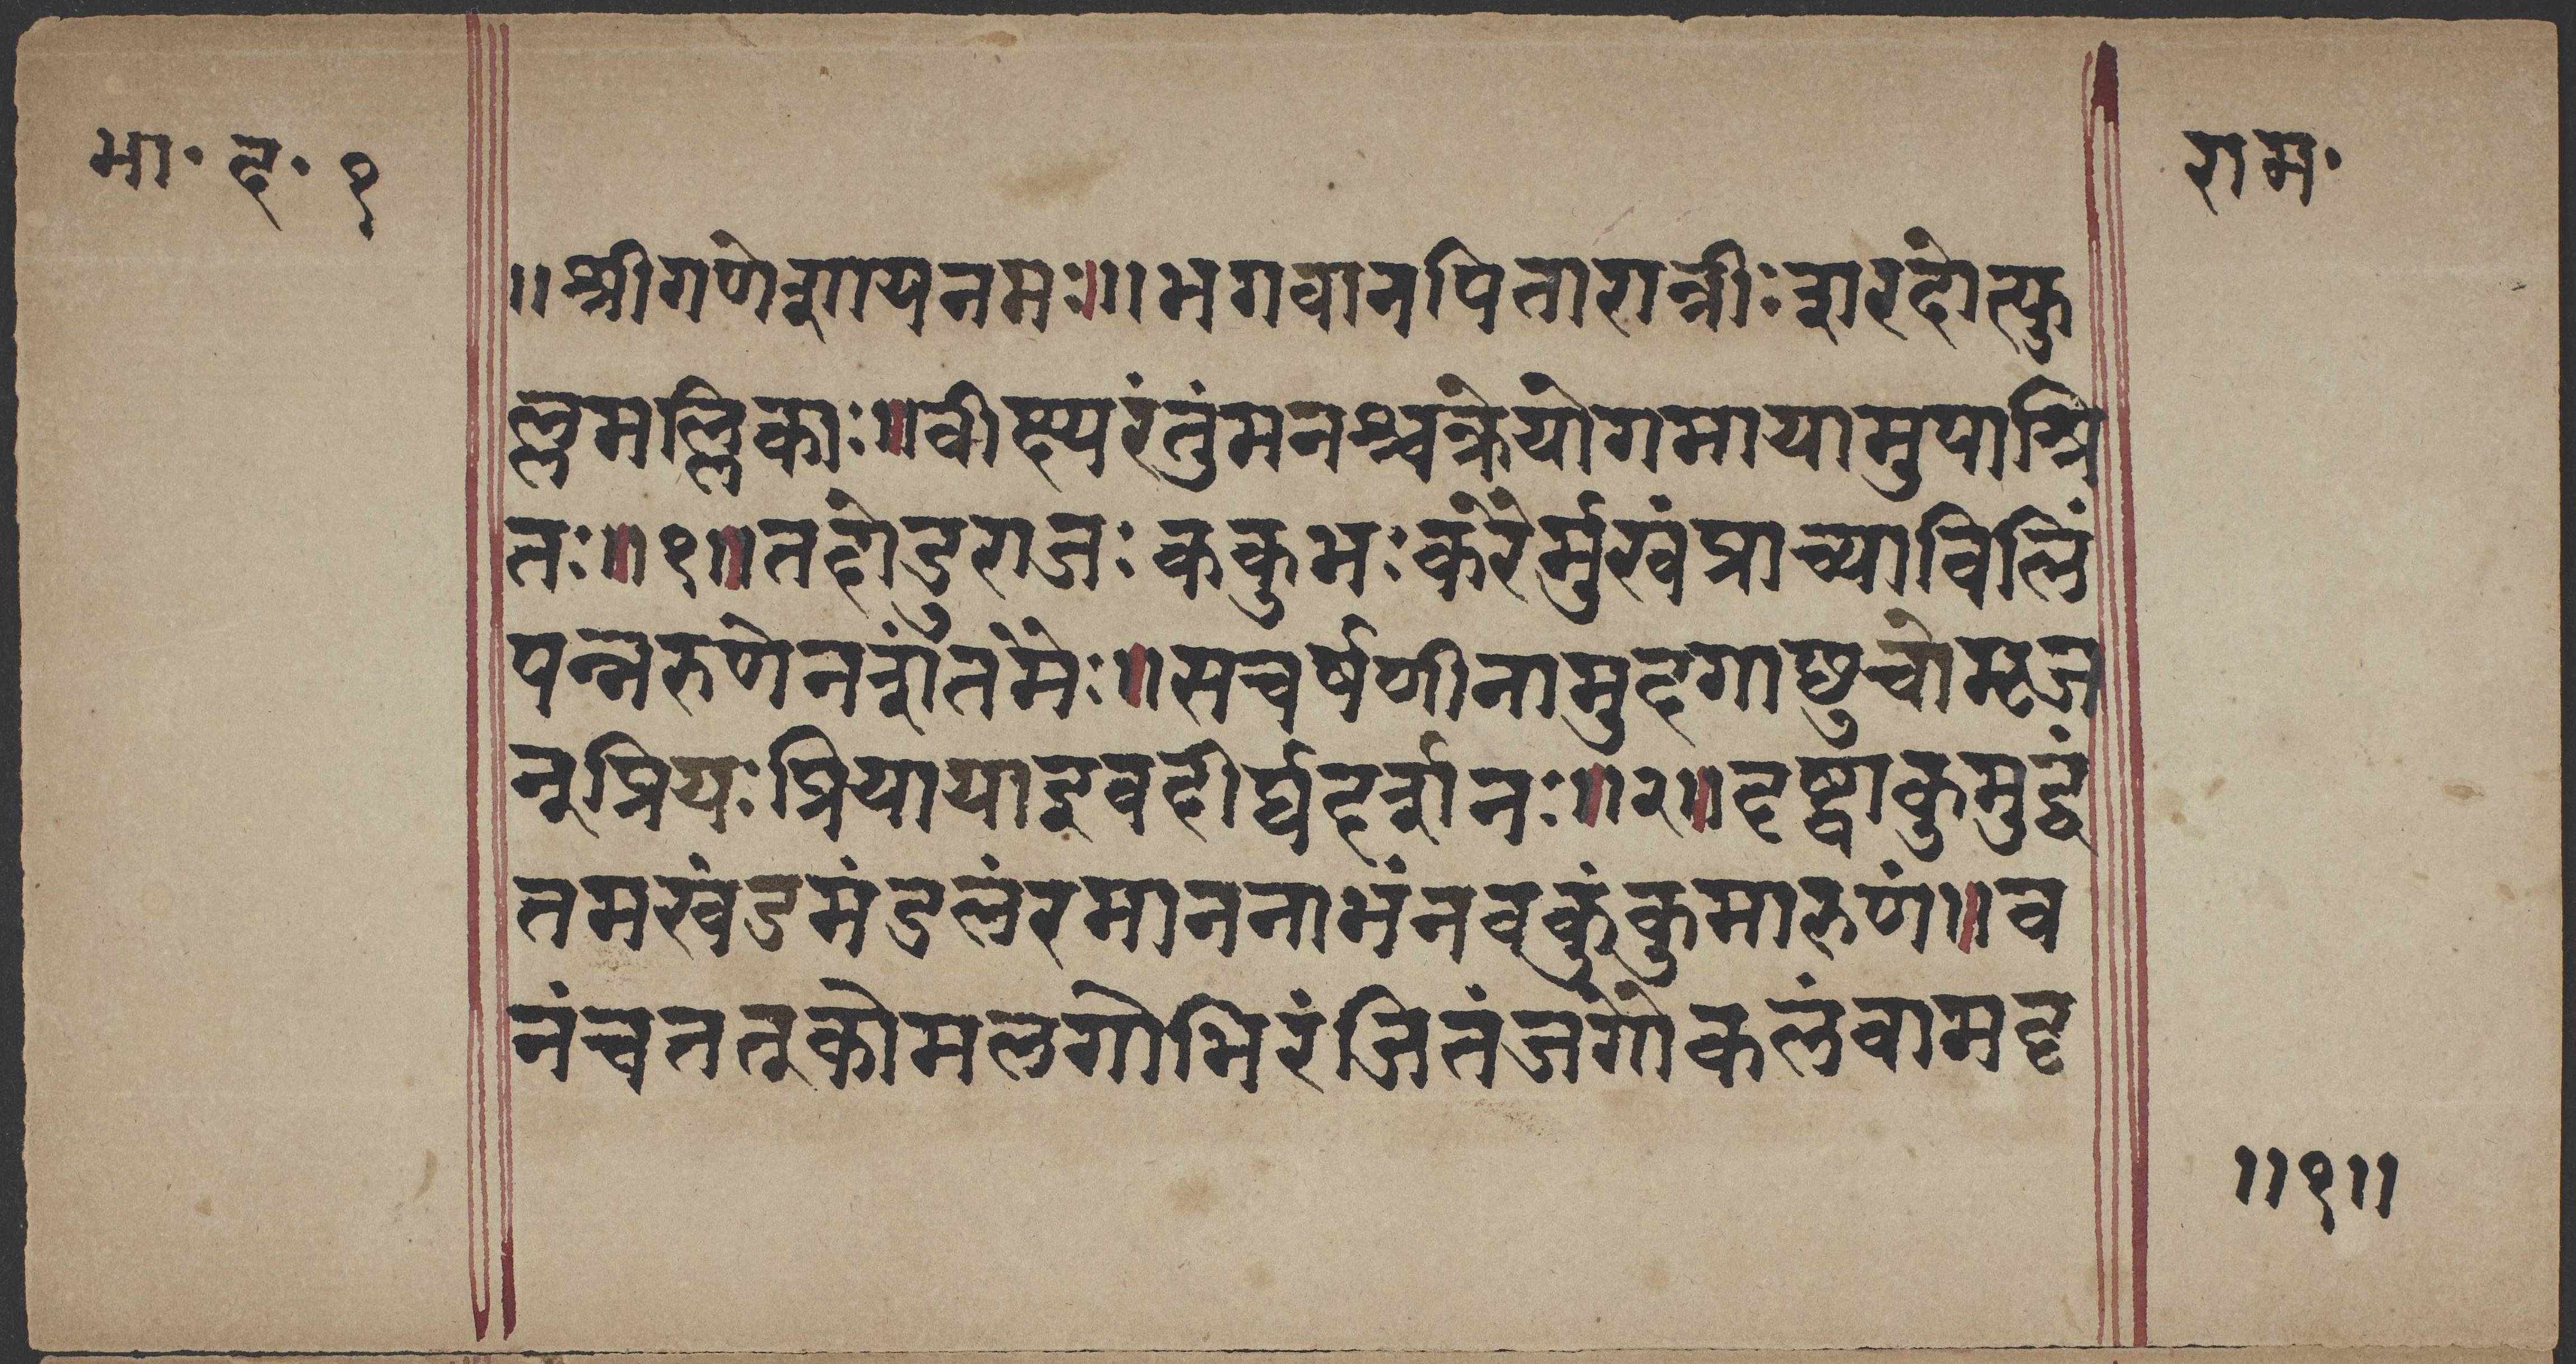 भा॰ द॰ १
राम॰
॥श्रीगणेशायनमः॥॥भगवानपितारात्रीःशारदोत्फु
ल्लमल्लिकाः॥वीक्ष्यरंतुंमनश्चक्रेयोगमायामुपाश्रि
तः॥१॥तदोडुराजःककुभःकरैर्मुखंप्राच्याविलिं
पन्नरुणेनशंतमैः॥सचर्षणीनामुदगाछुचोमृज
न्प्रियःप्रियायाइवदीर्घदर्शनः॥२॥दृष्ट्वाकुमुद्वं
तमखंडमंडलंरमाननाभंनवकुंकुमारुणं॥व
नंचतत्कोमलगोभिरंजितंजगौकलंवामदृ
॥१॥